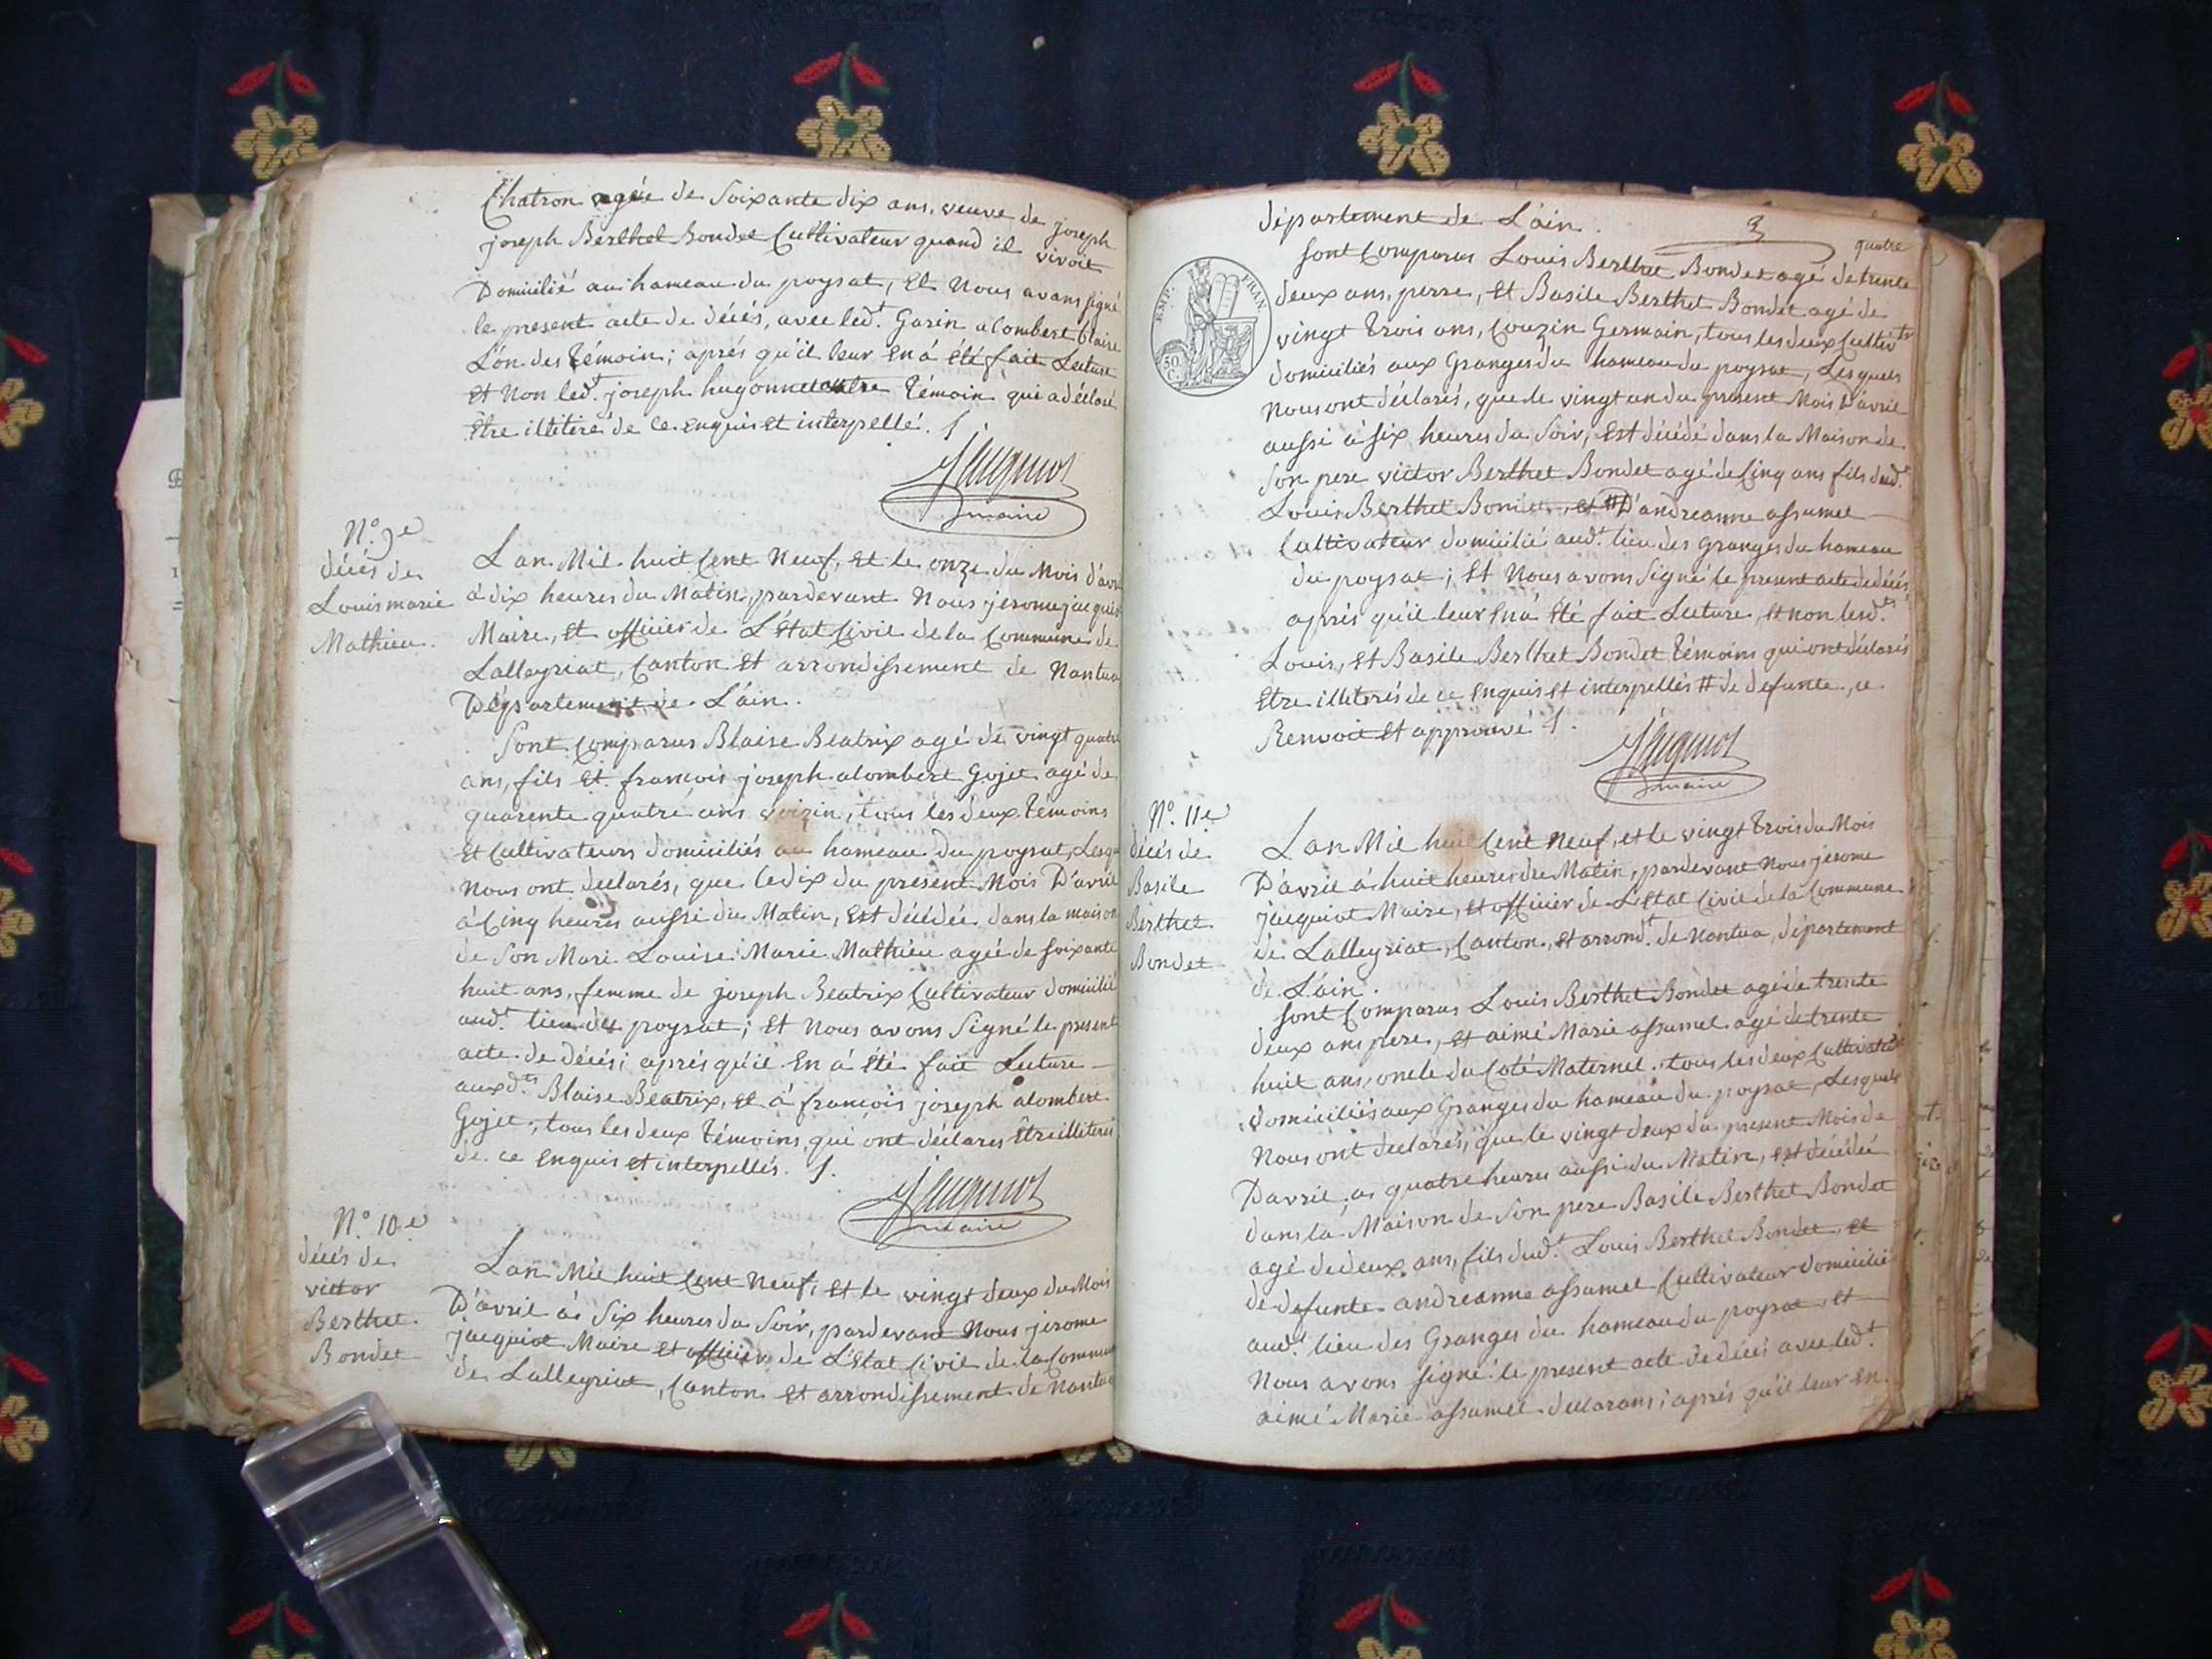 Chatron agée de soixante dix ans, veuve de joseph
joseph Berthet Bondet Cultivateur quand il vivoit
Domicilié au hameau du poysat, Et Nous avons signé
le present acte de décés, avec led.t Garin alombert blaise
L'ón des témoin; aprés qu'il leur En á été fait Lecture
Et Non led.t joseph hugonnet autre témoin qui a déclaré
être illitéré de ce Enquis Et interpellé.
Jacquiot
maire
N.o 9e
décés de
Louis marie
Mathieu.
Lan Mil huit Cent Neuf, Et le onze du Mois d'avril
á dix heures du Matin, pardevant Nous jerome jacquiot
Maire, Et officier de L'Etat Civil de la Commune de
Lalleyriat, Canton Et arrondissement de Nantua
Département de L'áin.
Sont Comparus Blaise Beatrix agé de vingt quatre
ans, fils Et francois joseph alombert Gojet agé de
quarente quatre ans voizin, tous les deux témoins
Et Cultivateurs domiciliés au hameau du poysat, Lesq
Nous ont declarés, que le dix du présent Mois D'avril
á Cinq heures aussi du Matin, Est décédée dans la maison
de Son Mari Louise Marie Mathieu agée de soixante
huit ans, femme de joseph Beatrix Cultivateur domicilié
aud.t lieu du poysat; Et Nous avons Signé le present
acte de décés; aprés qu'il En á été fait Lecture
auxd.ts Blaise Beatrix, Et á francois joseph alombert
Gojet, tous les deux témoins, qui ont déclarés Etre illiterés
de ce Enquis et interpellés.
Jacquiot
maire
N.o 10.e
décés de
victor
Berthet
Bondet
Lan Mil huit Cent Neuf, Et le vingt deux du Mois
D'avril ás Six heures du Soir, pardevant Nous jerome
jacquiot Maire Et officier de L'Etat Civil de la Commune
de Lalleyriat, Canton Et arrondissement de Nantua
département de L'áin.
quatre
EMP. FRAN.
50 C.
Sont Comparus Louis Berthet Bondet agé de trente
deux ans, perre, Et Basile Berthet Bondet agé de
vingt trois ans, Couzin Germain, tous les deux Cultiv.rs
domiciliés aux Granges du hameau du poysat, Lesquels
Nous ont déclarés, que le vingt un du present Mois D'avril
aussi á six heures du Soir, Est décédé dans la Maison de
Son pere victor Berthet Bondet agé de Cinq ans fils dud.t
Louis Berthet Bondet, et # D'andreanne assumel
Cultivateur domicilié aud.t lieu des Granges du hameau
du poysat; Et Nous avons Signé le present acte de décés,
aprés qu'il leur En á été fait Lecture, et non lesd.ts
Louis, Et Basile Berthet Bondet témoins qui ont déclarés
Etre illiterés de ce Enquis Et interpellés # de defunte, ce
Renvoit Et approuvé
Jacquiot
maire
N.o 11.e
décés de
Basile
Berthet
Bondet
Lan Mil huit Cent Neuf, et le vingt trois du Mois
D'avril á huit heures du Matin, pardevant Nous jerome
jacquiot Maire, Et officier de L'Etat Civil de la Commune
de Lalleyriat, Canton, Et arrond.t de Nantua, département
de L'áin.
Sont Comparus Louis Berthet Bondet agé de trente
deux ans pere, Et aimé Marie assumel agé de trente
huit ans, oncle du Coté Maternel. tous les deux Cultivateurs
domiciliés aux Granges du hameau du poysat, Lesquels
Nous ont declarés, que le vingt deux du present Mois de
D'avril, ás quatre heures aussi du Matin, est décédé
dans la Maison de Son pere Basile Berthet Bondet
agé de deux ans, fils dud.t Louis Berthet Bondet, et
de defunte andreanne assumel Cultivateur domicilié
aud.t lieu des Granges du hameau du poysat, et
Nous avons signé le present acte de décés avec led.t
aimé Marie assumel declarans; aprés qu'il leur En